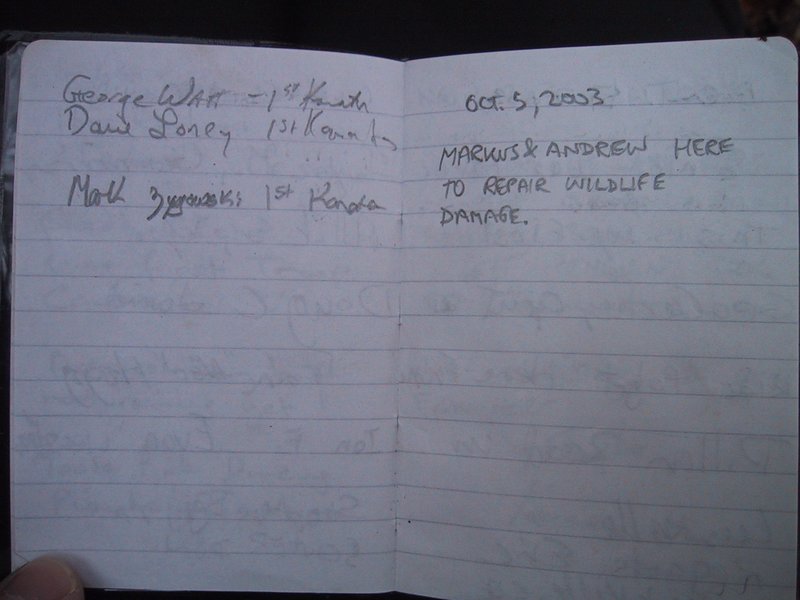 George Watt - 1st Kanata
Dave Loney 1st Kanata
Mark 1st Kanata
Oct. 5, 2003
MARKUS & ANDREW HERE
TO REPAIR WILDLIFE
DAMAGE.